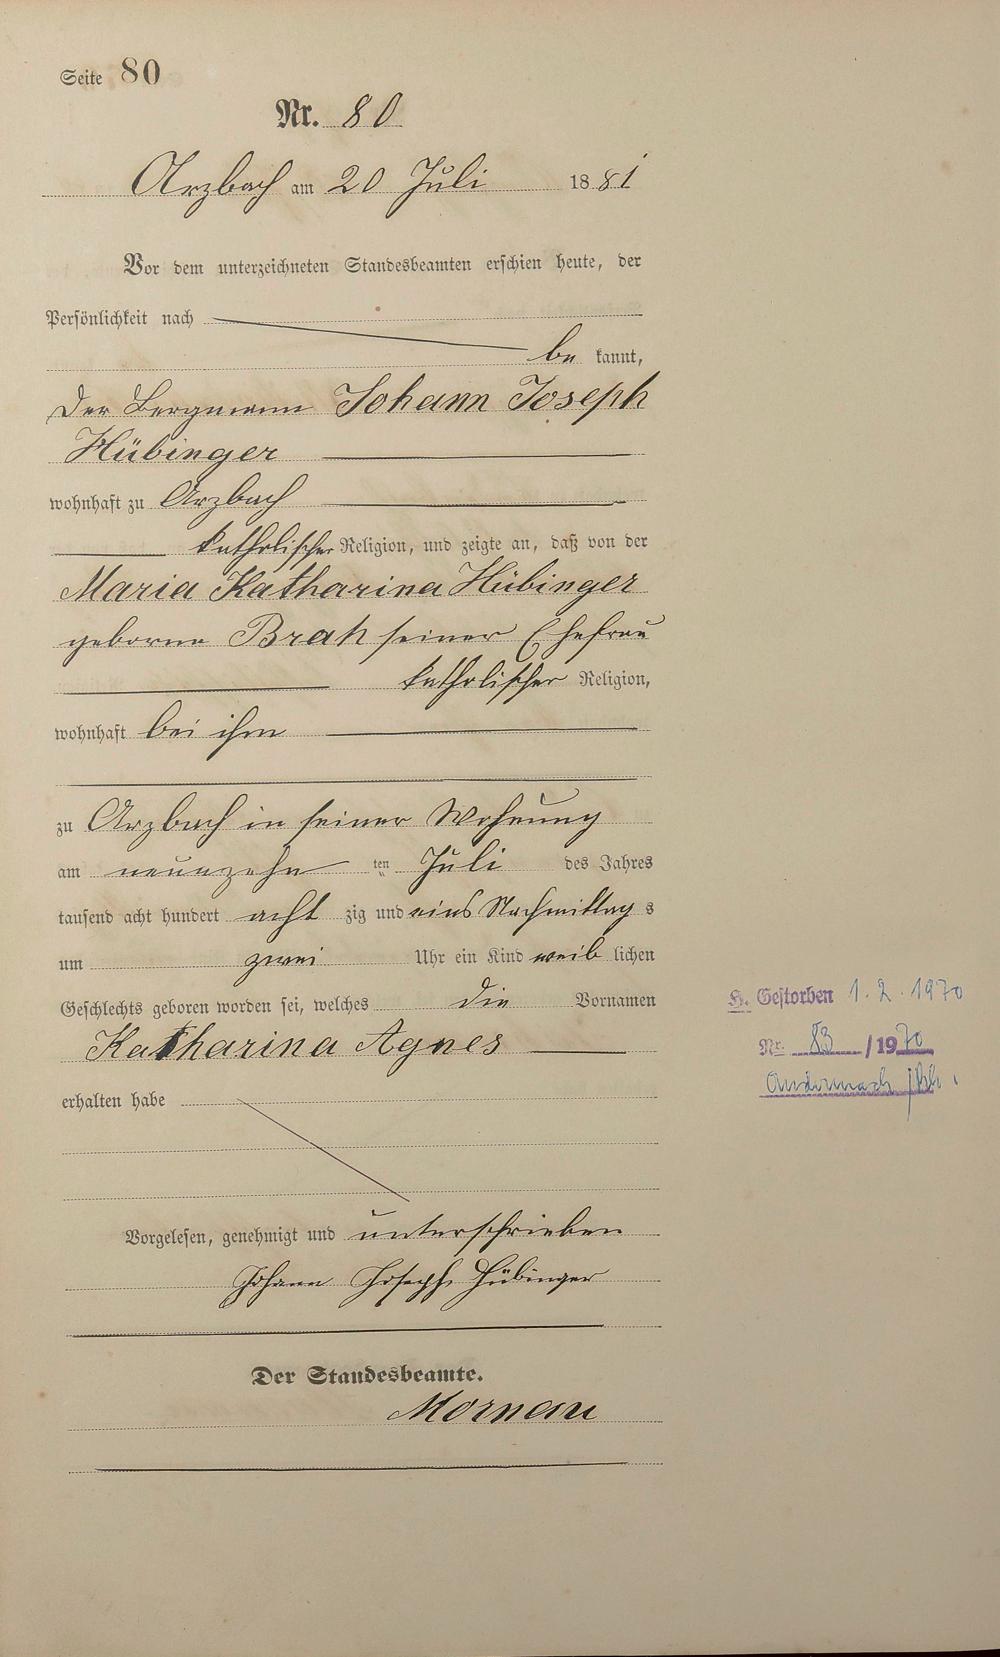 Seite 80
Nr. 80
Arzbach am 20 Juli 1881
Vor dem unterzeichneten Standesbeamten erschien heute, der
Persönlichkeit nach
be kannt,
der Bergmann Johann Joseph
Hübinger
wohnhaft zu Arzbach
katholischer Religion, und zeigte an, daß von der
Maria Katharina Hübinger
geborne Brah seiner Ehefrau
katholischer Religion,
wohnhaft bei ihm
zu Arzbach in seiner Wohnung
am neunzehn ten Juli des Jahres
tausend acht hundert acht zig und eins Nachmittag s
um zwei Uhr ein Kind weib lichen
Geschlechts geboren worden sei, welches die Vornamen
Katharina Agnes
erhalten habe
Vorgelesen, genehmigt und unterschrieben
Johann Joseph Hübinger
Der Standesbeamte.
Mornau
Gestorben 1.2.1970
Nr. 83/1970
Andernach/Rh.